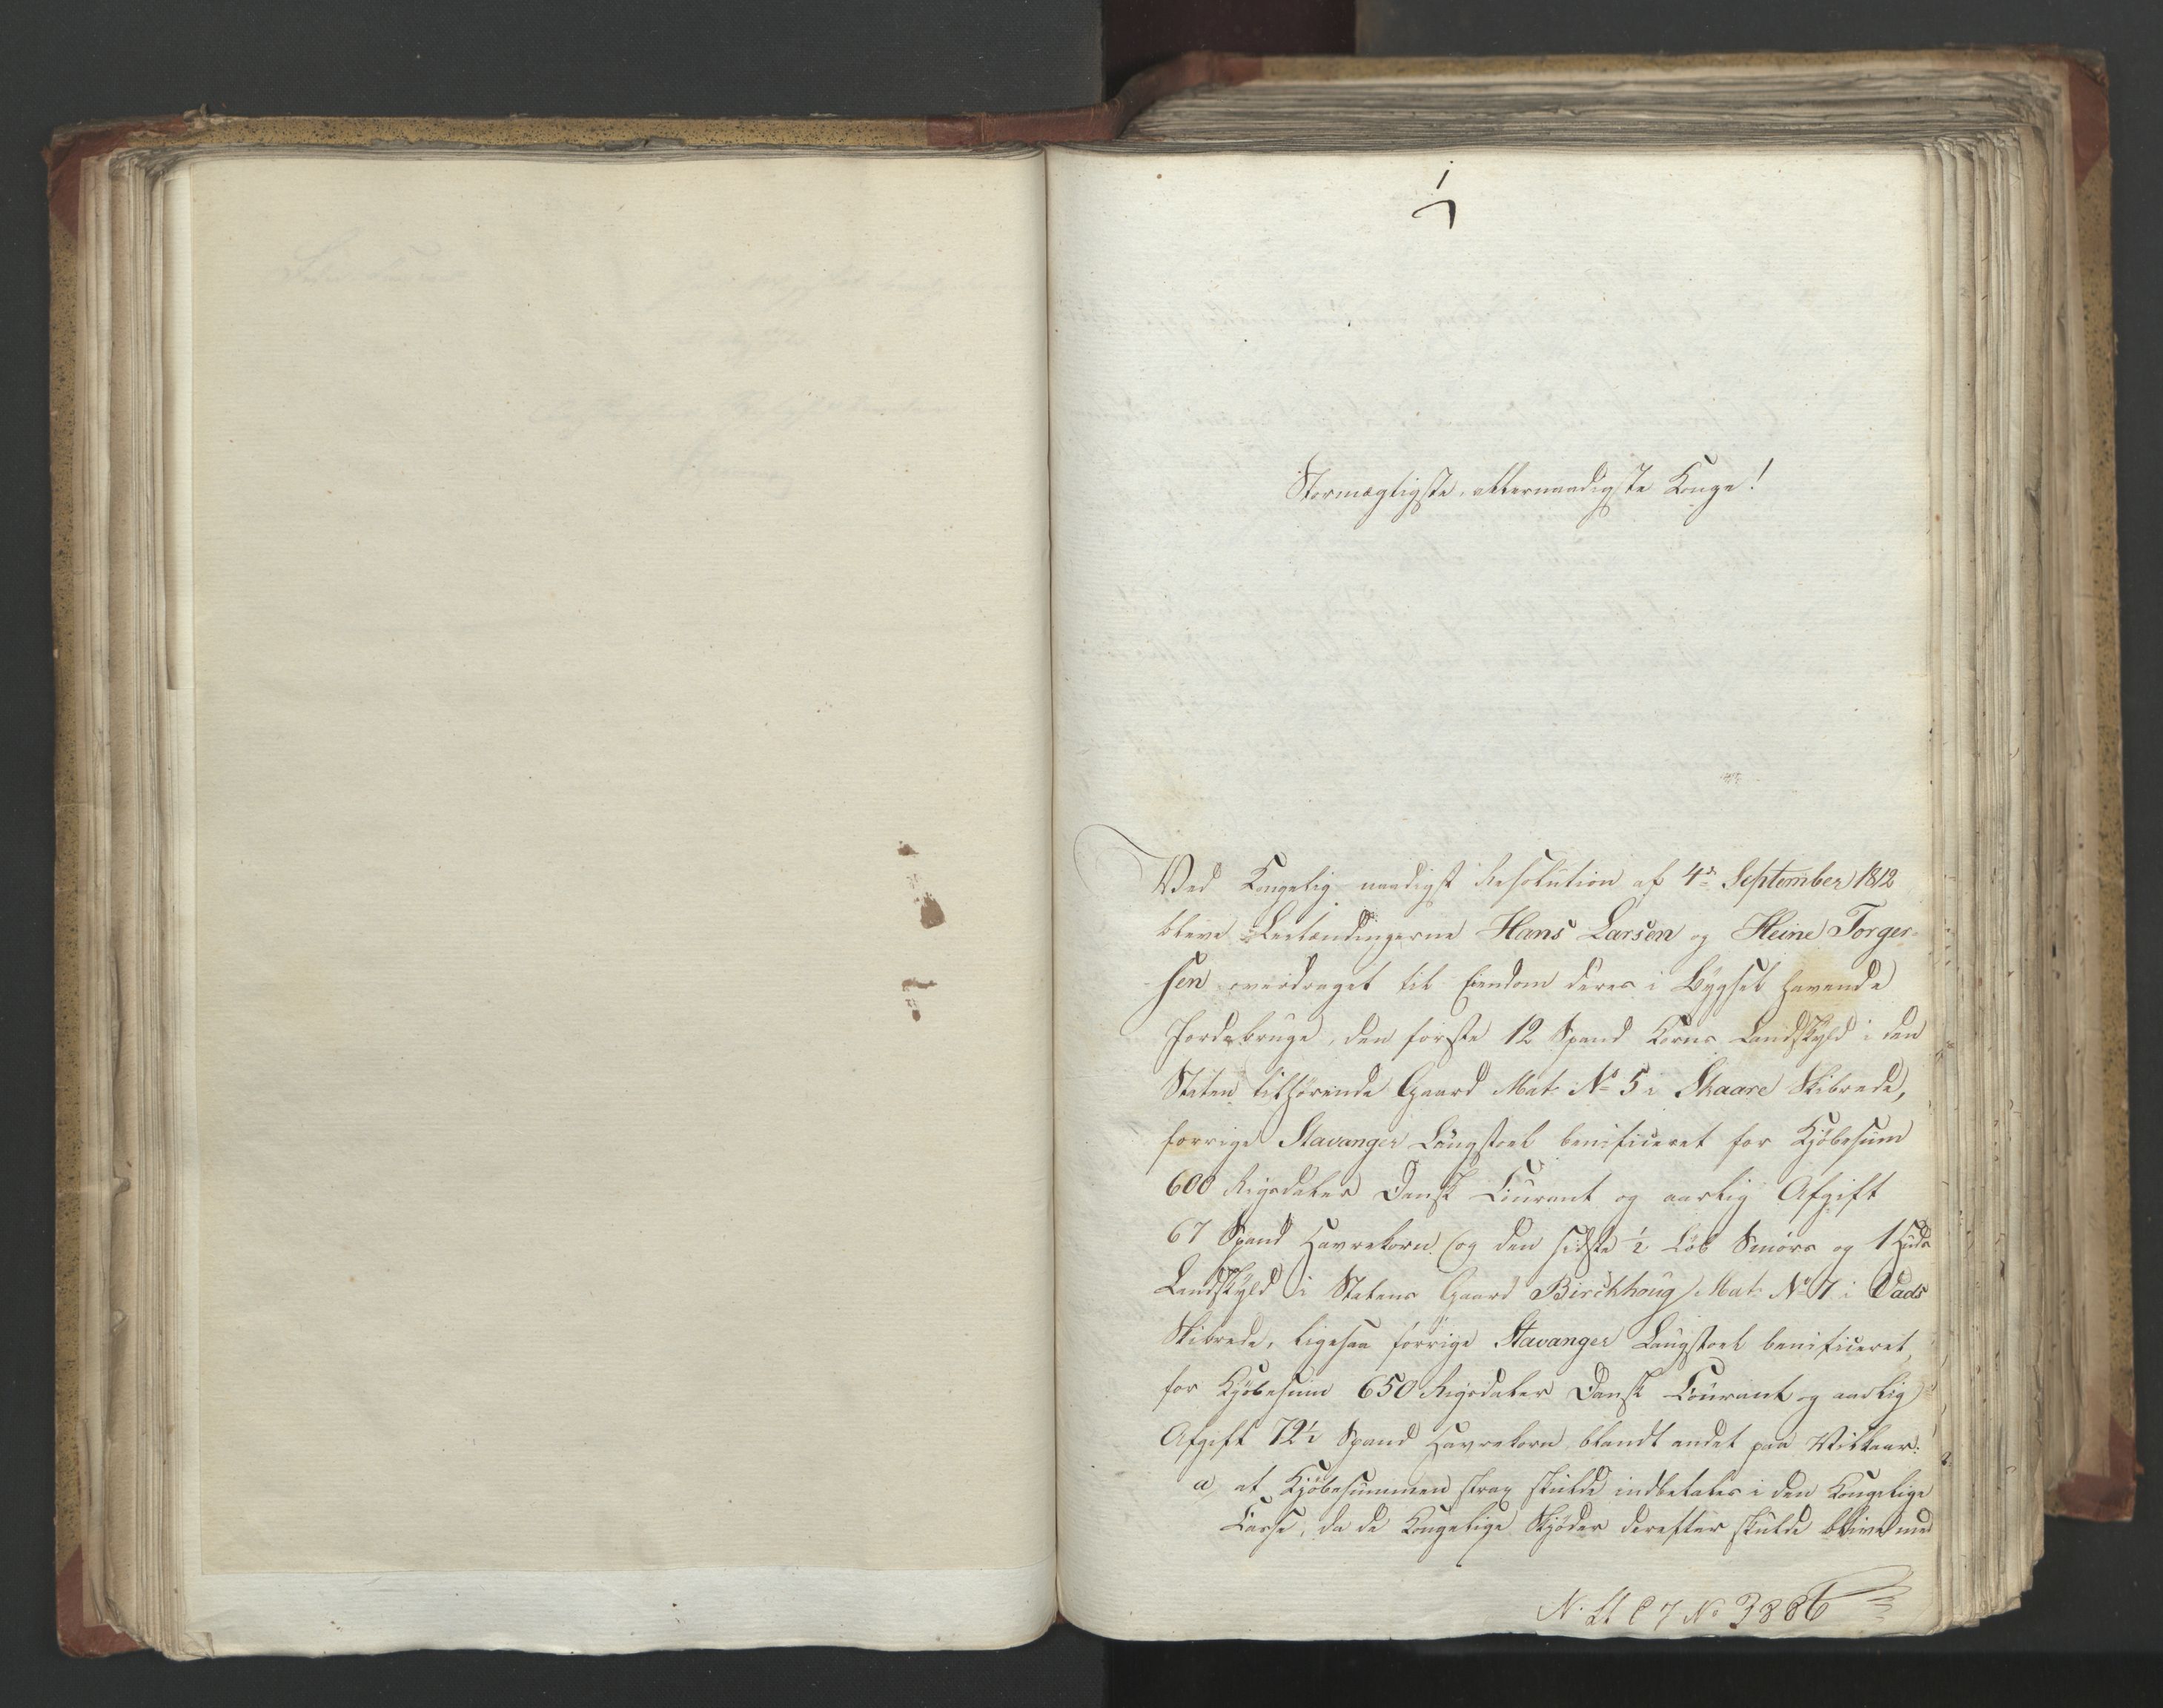 Stormægtigste, allernaadigste Konge!
Ved Kongelig naadigst Resolution af 4de September 1812
bleve Leilændingerne Hans Larsen og Heine Torger-
sen overdraget til Eiendom deres i Bygsel havende
Jordebruge, den første 12 Spand Korns Landskyld i den
Staten tilhørende Gaard Mat: No 5 i Skaare Skibrede,
forrige Stavanger Laugstoel benificeret for Kjøbesum
600 Rigsdaler Dansk Courant og aarlig Afgift
67 Spand Havrekorn, og den sidste ½ Løb Smørs og 1 Huds
Landskyld i Statens Gaard Birchhoug Mat: No 7 i Vads
Skibrede, ligesaa forrige Stavanger Laugstoel benificeret,
for Kjøbesum 650 Rigsdaler Dansk Courant og aarlig
Afgift 72½ Spand Havrekorn, blandt andet paa Vilkaar:
a, at Kjøbesummen strax skulde indbetales i den Kongelige
Casse, da de Kongelige Skjøder derefter skulde blive med
No 3886